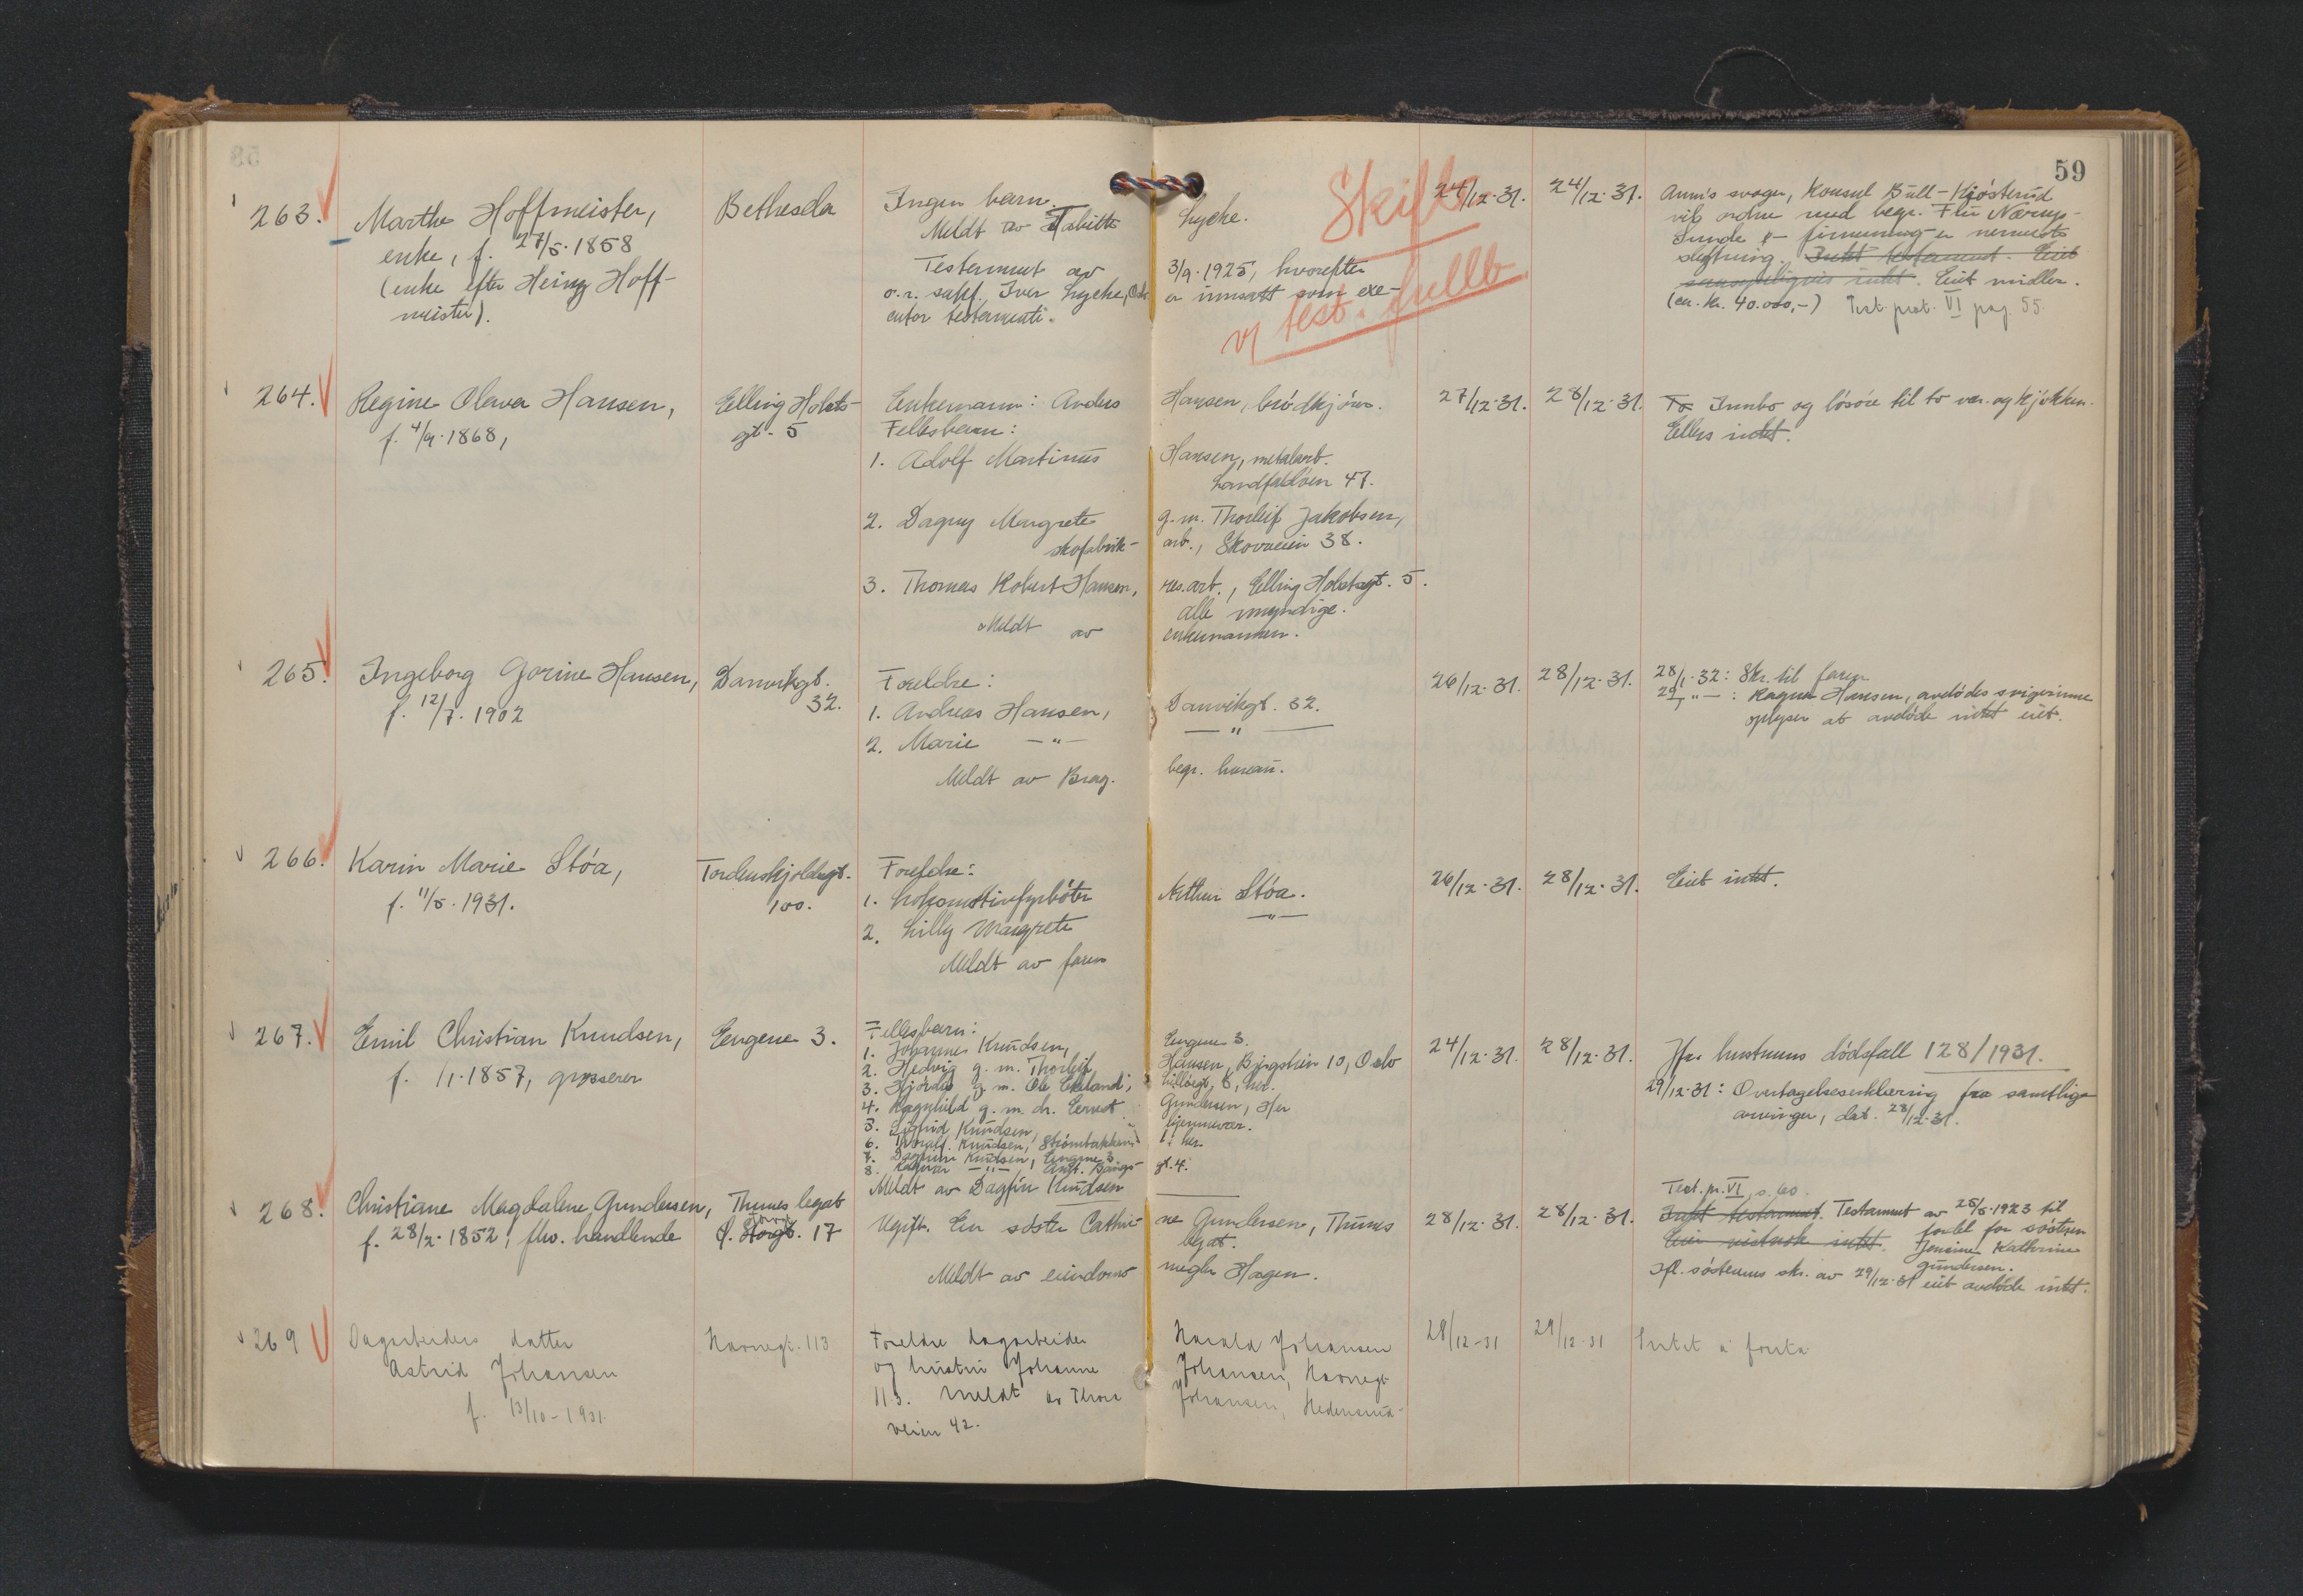 59
263. Marthe Hoffmeister,
enke, f. 27/5. 1858
(enke efter Heinz Hoff-
meister).
Bethesda
Ingen barn.
Meldt av Tabitta Lycke.
Testament av 3/9. 1925, hvorefter
o.r. sakf. Iver Lycke, Oslo er innsatt som exe-
cutor testamenti.
Skifte
vj test. fullb
24/12. 31. 24/12. 31.
Anm's svoger, Konsul Bull-Kjøsterud
vil ordne med begr. Flü Nærup-
slegtning. Intet testament. Eiet
sannsynligvis intet. Eiet midler.
(ca. kr. 40.000,-) Test. prot. VI pag. 55.
264. Regine Olava Hansen,
f. 4/9. 1868,
Elling Holsts-
gt. 5
Enkemann: Anders Hansen, brødkjører.
Fellesbarn:
1. Adolf Martinus Hansen, metalarb.
Landfaldøen 47.
2. Dagny Margrete g. m. Thorleif Jakobsen,
skofabrik- arb., Skovveien 38.
3. Thomas Robert Hansen, res.arb., Elling Holstsgt. 5.
alle myndige.
Meldt av enkemannen.
27/12. 31. 28/12. 31.
To Innbo og løsøre til to vær. og kjøkken.
Ellers intet.
265. Ingeborg Gorine Hansen,
f. 12/7. 1902
Danvikgt.
32.
Foreldre:
1. Andreas Hansen, Danvikgt. 32.
2. Marie —"— —"—
Meldt av Brag. begr. bureau.
26/12. 31. 28/12. 31.
28/1. 32: Skr. til faren
29/ —"— : Ragna Hansen, avdødes svigerinne
oplyser at avdøde intet eiet.
266. Karin Marie Støa,
f. 11/5. 1931.
Tordenskjoldsgt.
100.
Foreldre:
1. Lokomotivfyrbøter Arthur Støa.
2. Lilly Margrete —"—
Meldt av faren
26/12. 31. 28/12. 31.
Eiet intet.
267. Emil Christian Knudsen,
f. 1/1. 1857, grosserer
Engene 3.
Fellesbarn:
1. Johannes Knudsen, Engene 3.
2. Hedvig g. m. Thorleif Hansen, 10, Oslo
3. Hjørdis g. m. Ole
4. Ragnhild g. m. dr. Ernst Gundersen, Her
5. Sigrid Knudsen, hjemmevær.
6. Thoralf Knudsen, Strømbakken
7. Dagfinn Knudsen, Engene 3.
8. Ragnar —"—, Aug. Bangs- gt. 4.
Meldt av Dagfin Knudsen
24/12. 31. 28/12. 31.
Jfr. hustruens dødsfall 128/1931.
29/12. 31: Overtagelseserklæring fra samtlige
arvinger, dat. 28/12. 31.
268. Christiane Magdalene Gundersen,
f. 28/2. 1852, fhv. handlende
Thunes legat
17
Ugift. En søster Cathri- ne Gundersen, Thunes
legat.
Meldt av eiendoms- megler Hagen.
28/12. 31. 28/12. 31.
Test. pr. VI, s. 60.
Intet testament. Testament av 25/5. 1923 til
fordel for søsteren
Jensine Kathrine
Gundersen.
Jfl. søsterens skr. av 29/12. 31 eiet avdøde intet.
269 Dagarbeiders datter
Astrid Johansen
f. 13/10 - 1931.
Havnegt. 113
Foreldre dagarbeider Harald Johansen
og hustru Johanne Johansen, Havnegt
113. Meldt av Thora Johansen, Hedensrud-
veien 42.
29/12 - 31 29/12. 31
Intet å foreta